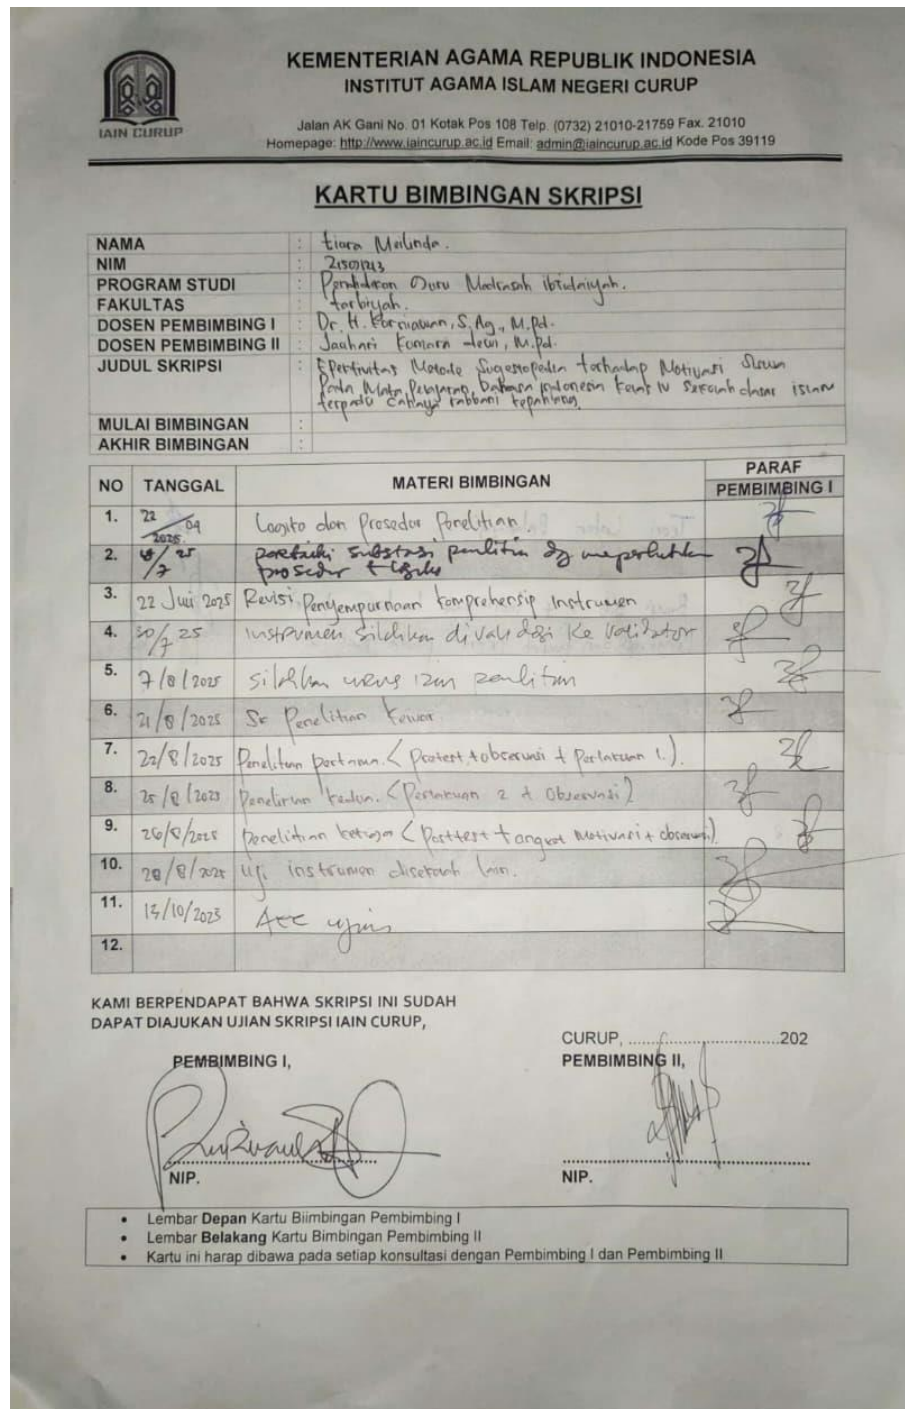 KEMENTERIAN AGAMA REPUBLIK INDONESIA
INSTITUT AGAMA ISLAM NEGERI CURUP
IAIN CURUP
Jalan AK Gani No. 01 Kotak Pos 108 Telp. (0732) 21010-21759 Fax. 21010
Homepage: http://www.iaincurup.ac.id Email: admin@iaincurup.ac.id Kode Pos 39119
KARTU BIMBINGAN SKRIPSI
NAMA : tiara Meilinda.
NIM :
PROGRAM STUDI : Guru Madrasah ibtidaiyah.
FAKULTAS : tarbiyah.
DOSEN PEMBIMBING I : Dr. H. Kurniawan, S.Ag., M.Pd.
DOSEN PEMBIMBING II : Jauhari Kumara dewi, M.Pd.
JUDUL SKRIPSI : Metode Sugestopedia terhadap Motivasi Siswa
Pada Mata Bahasa indonesia kelas IV Sekolah dasar islam
terpadu Cahaya rabbani kepahiang.
MULAI BIMBINGAN :
AKHIR BIMBINGAN :
NO TANGGAL MATERI BIMBINGAN PARAF
PEMBIMBING I
1. 22/04 2025. dan Prosedur Penelitian.
2. prosedur +
3. 22 2025 Revisi Penyempurnaan komprehensip Instrumen
4. 30/7 25 instrumen silahkan di validasi ke validator
5. 7/8/2025 silahkan izin penelitian
6. 21/8/2025 Penelitian
7. 22/8/2025 Penelitian pertama. + Perlakuan 1.).
8. Penelitian kedua. (Perlakuan 2 + Observasi)
9. 26/8/2025 Penelitian ketiga (Posttest + Motivasi +
10. Uji instrumen lain.
11. Acc ujian
12.
KAMI BERPENDAPAT BAHWA SKRIPSI INI SUDAH
DAPAT DIAJUKAN UJIAN SKRIPSI IAIN CURUP,
CURUP, ..............................202
PEMBIMBING I, PEMBIMBING II,
NIP. NIP.
• Lembar Depan Kartu Biimbingan Pembimbing I
• Lembar Belakang Kartu Bimbingan Pembimbing II
• Kartu ini harap dibawa pada setiap konsultasi dengan Pembimbing I dan Pembimbing II